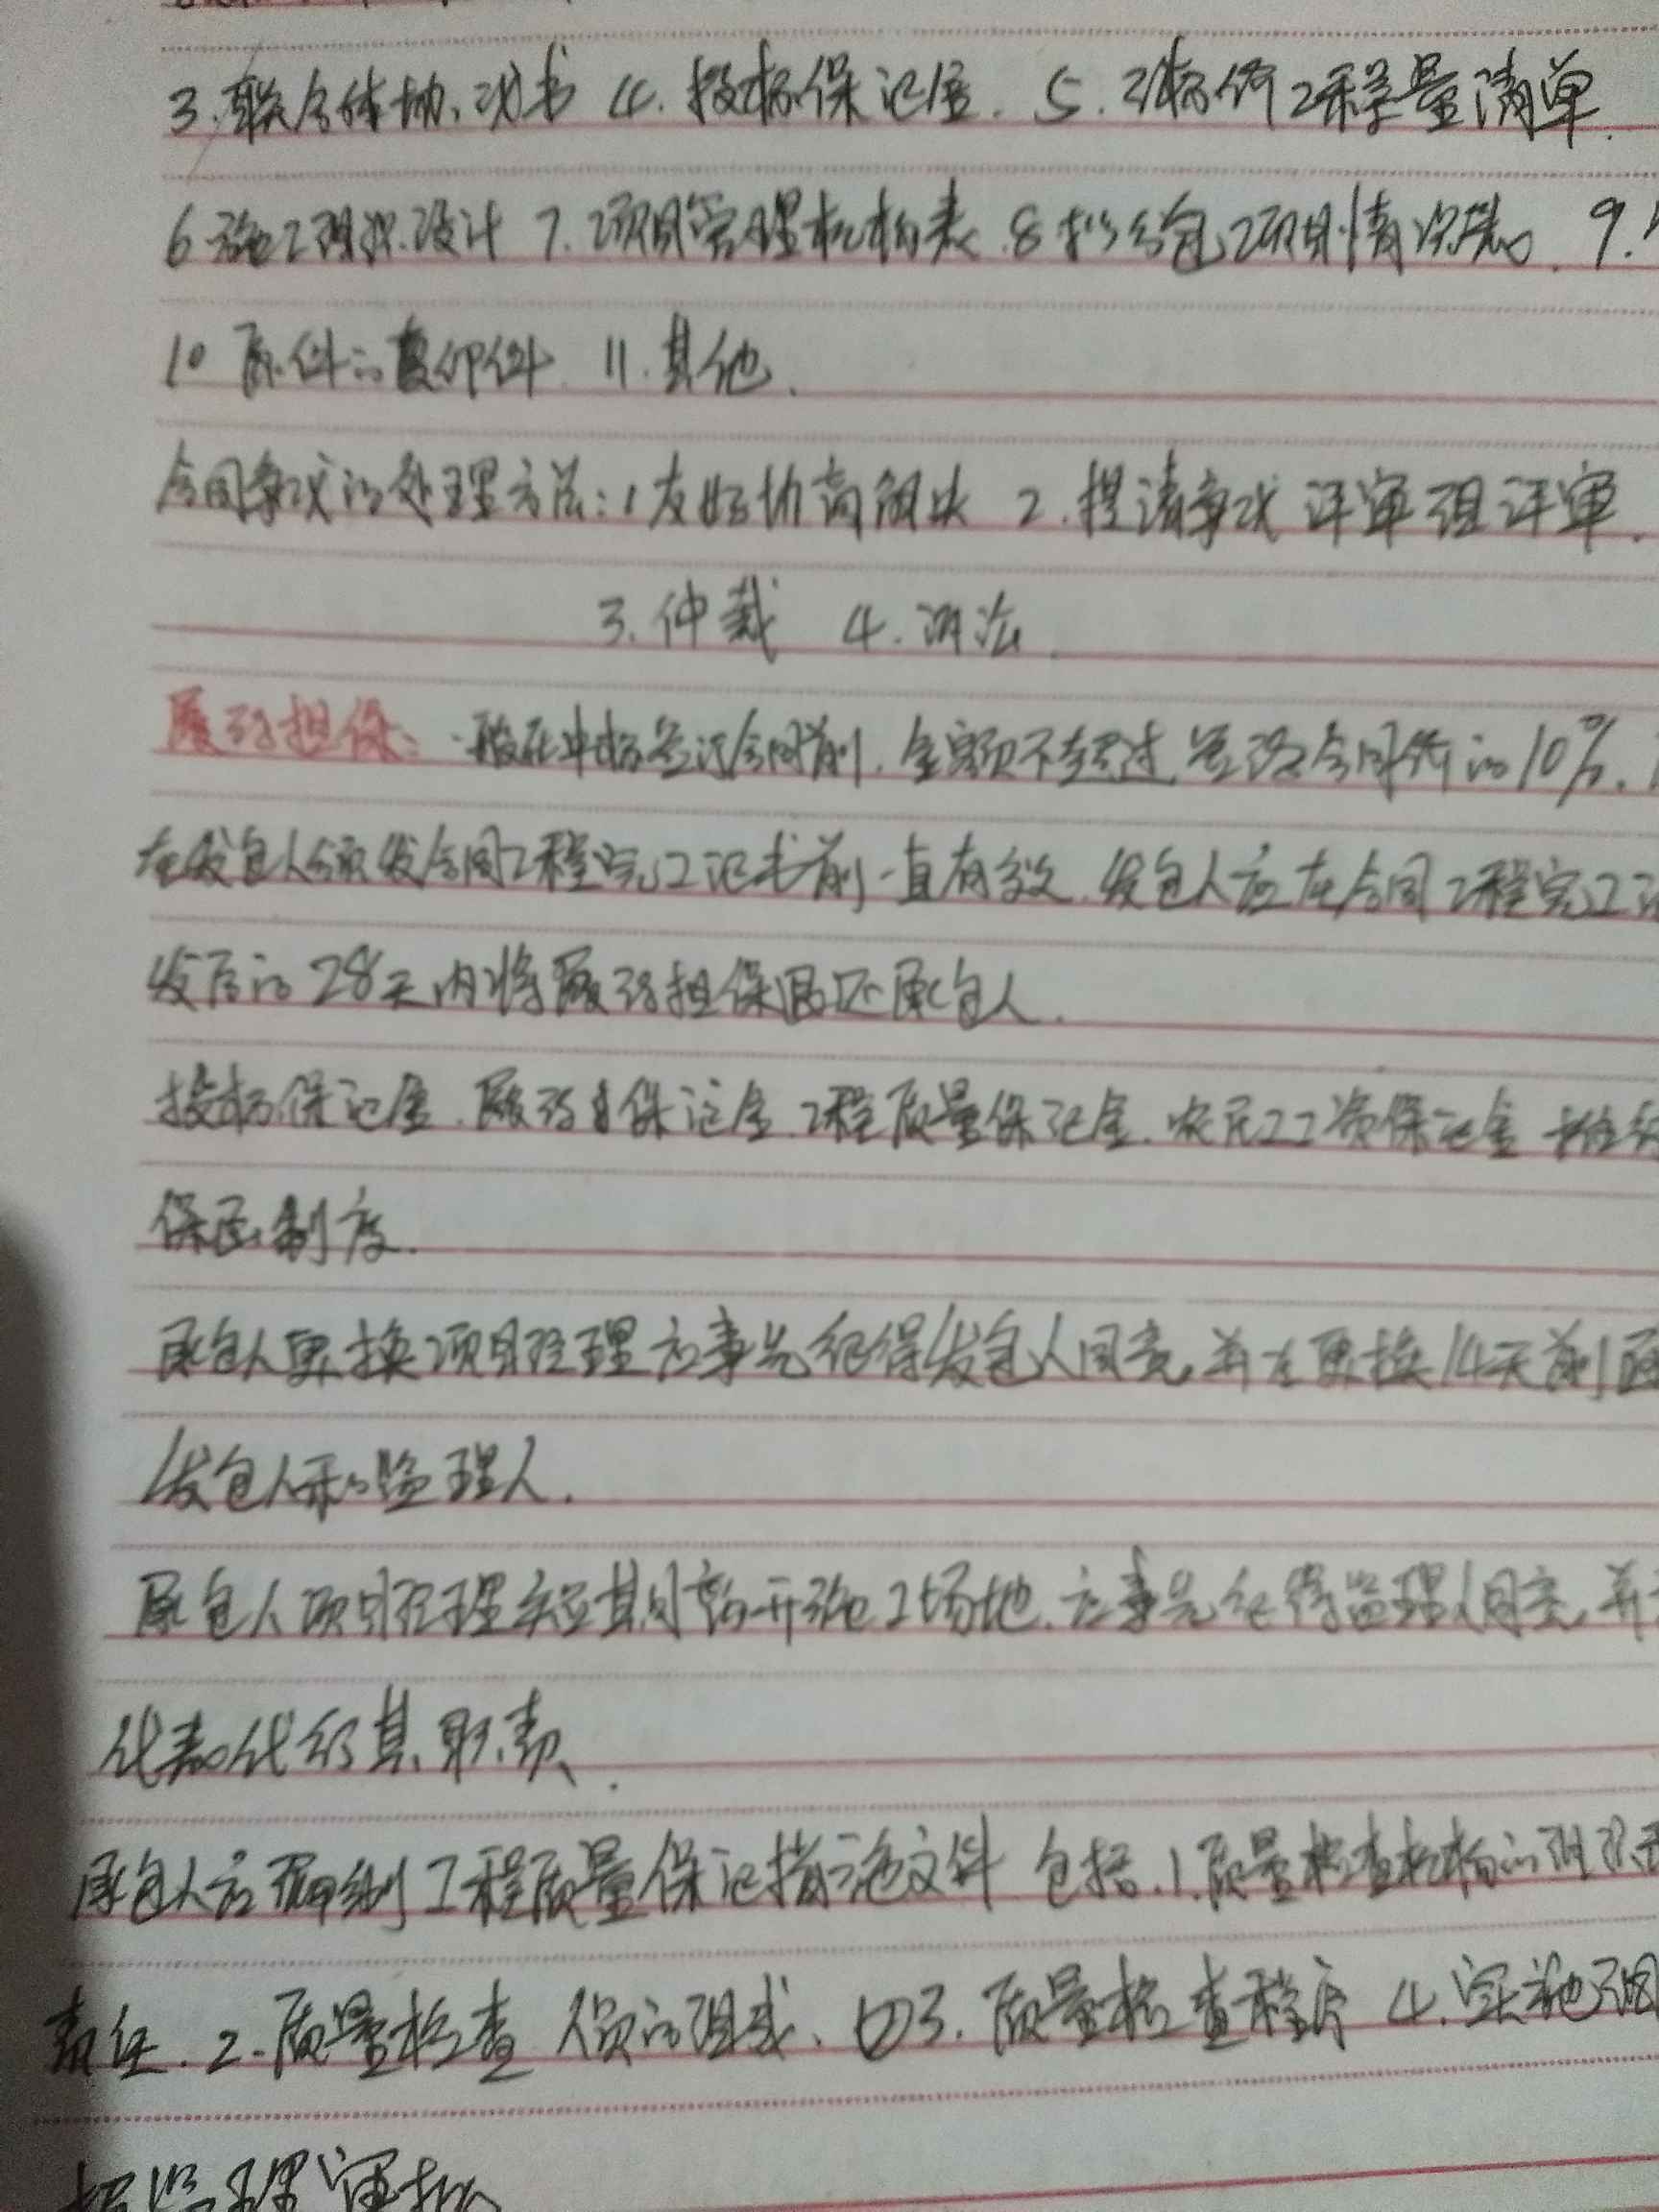 3.联合体协议书 4.投标保证金. 5.已标价工程量清单.
6施工组织设计 7.项目管理机构表 8拟分包项目情况表. 9.
10原件的复印件 11.其他.
合同争议的处理方法:1友好协商解决 2.提请争议评审组评审.
3.仲裁 4.诉讼.
履约担保:一般在中标签订合同前.金额不超过签约合同价的10%.
在发包人颁发合同工程完工证书前一直有效.发包人应在合同工程完工证
发后的28天内将履约担保退还承包人.
投标保证金.履约保证金.工程质量保证金.农民工工资保证金
保函制度.
承包人更换项目经理应事先征得发包人同意,并在更换14天前
发包人和监理人.
承包人项目经理短期离开施工场地.应事先征得监理人同意,并
代表代行其职责.
承包人应编制工程质量保证措施文件 包括.1.质量检查机构的组织
责任.2.质量检查人员的组成、3.质量检查程序 4.实施细
报监理审批